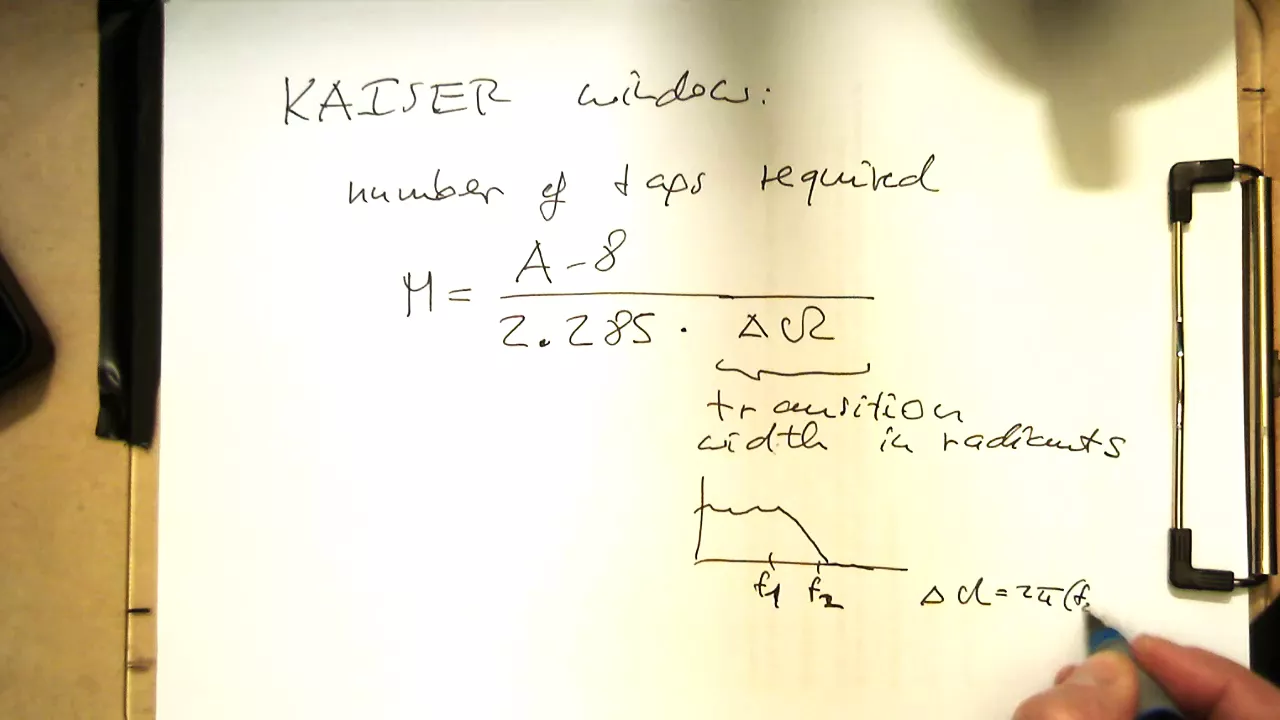 KAISER window:
number of taps required
M = A - 8 / 2.285 · ΔΩ
transition
width in radiants
f1 f2 ΔΩ = 2π(f